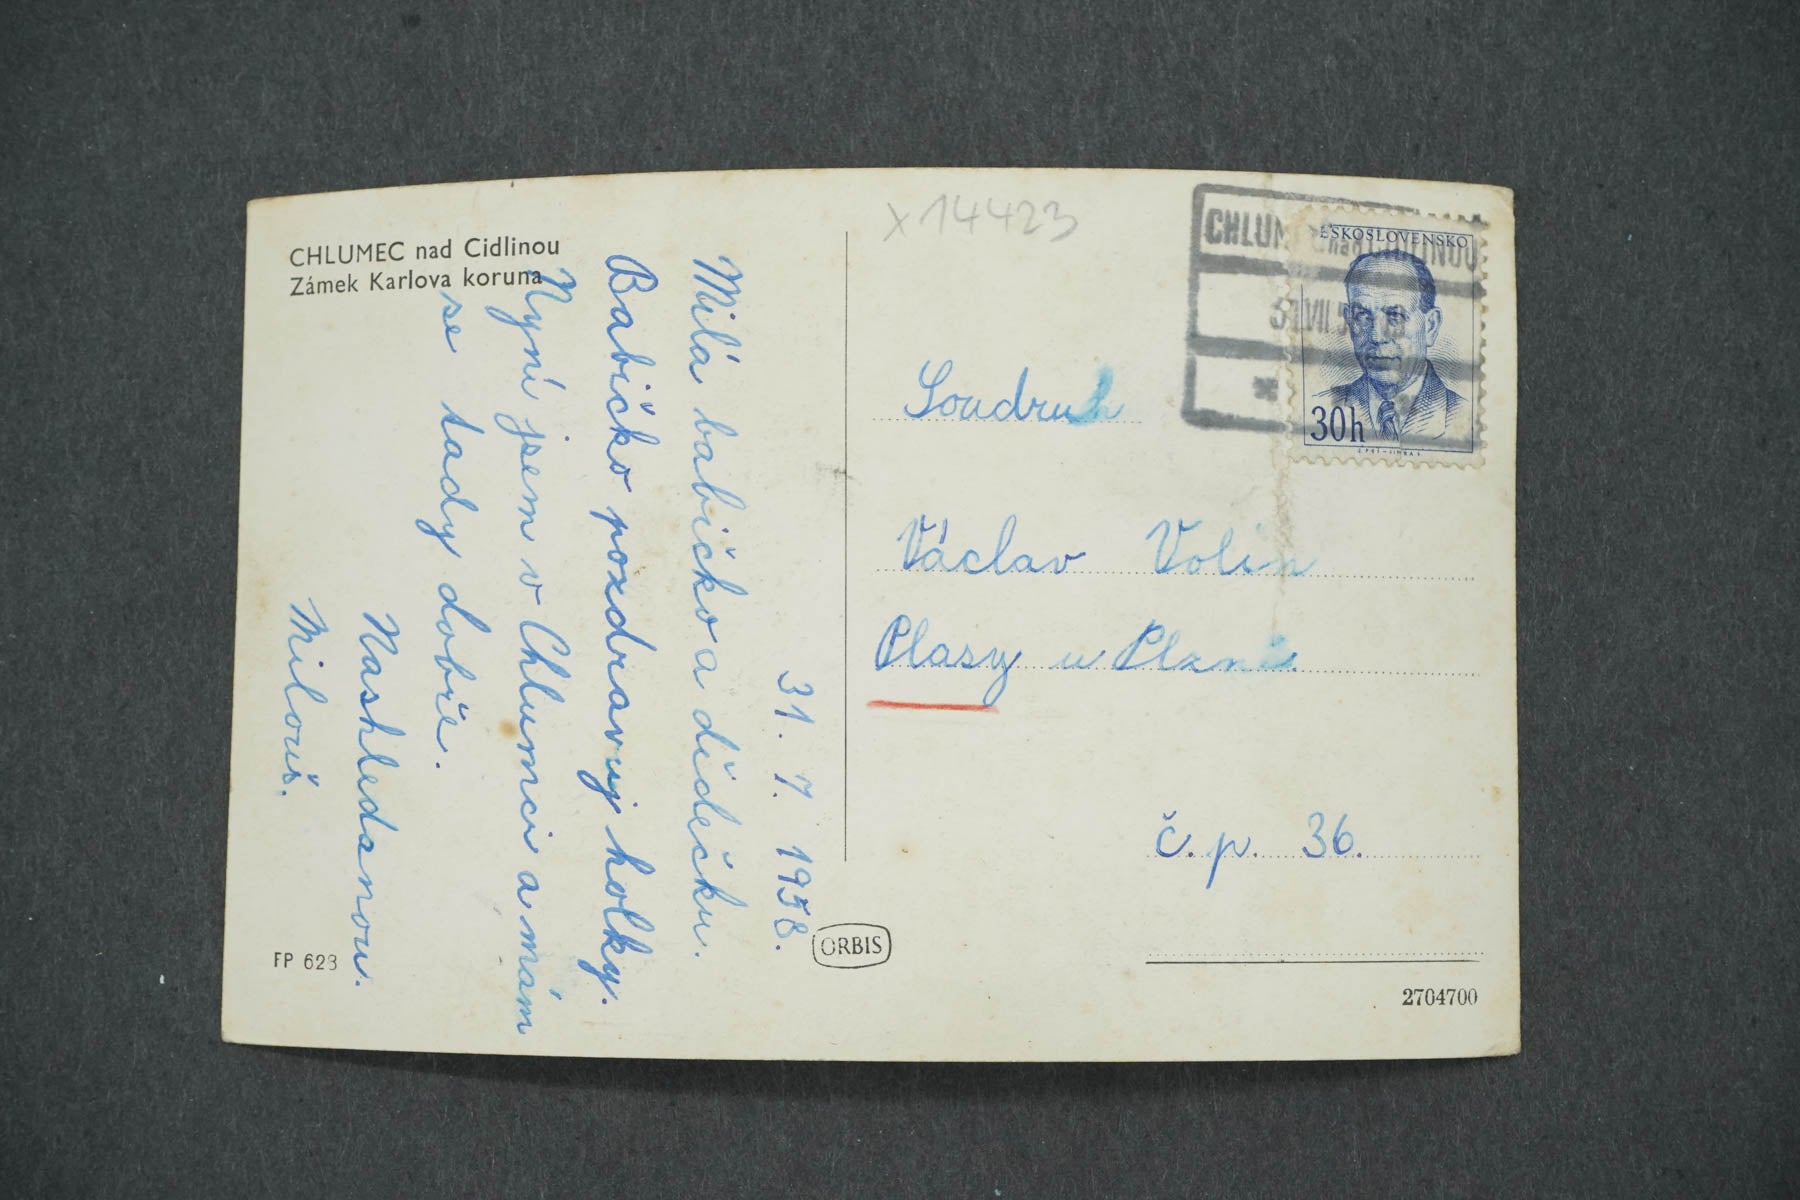 CHLUMEC nad Cidlinou
Zámek Karlova koruna
31. 7. 1958.
Milá babičko a dědečku.
Babičko pozdravuj holky.
Nyní jsem v Chlumci a mám
se tady dobře.
Nashledanou.
Milouš.
FP 623
ORBIS
x 14423
CHLUMEC nad CIDLINOU
31.VII.58
ČESKOSLOVENSKO
30h
Soudruh
Václav Volín
Plasy u Plzně.
č. p. 36.
2704700